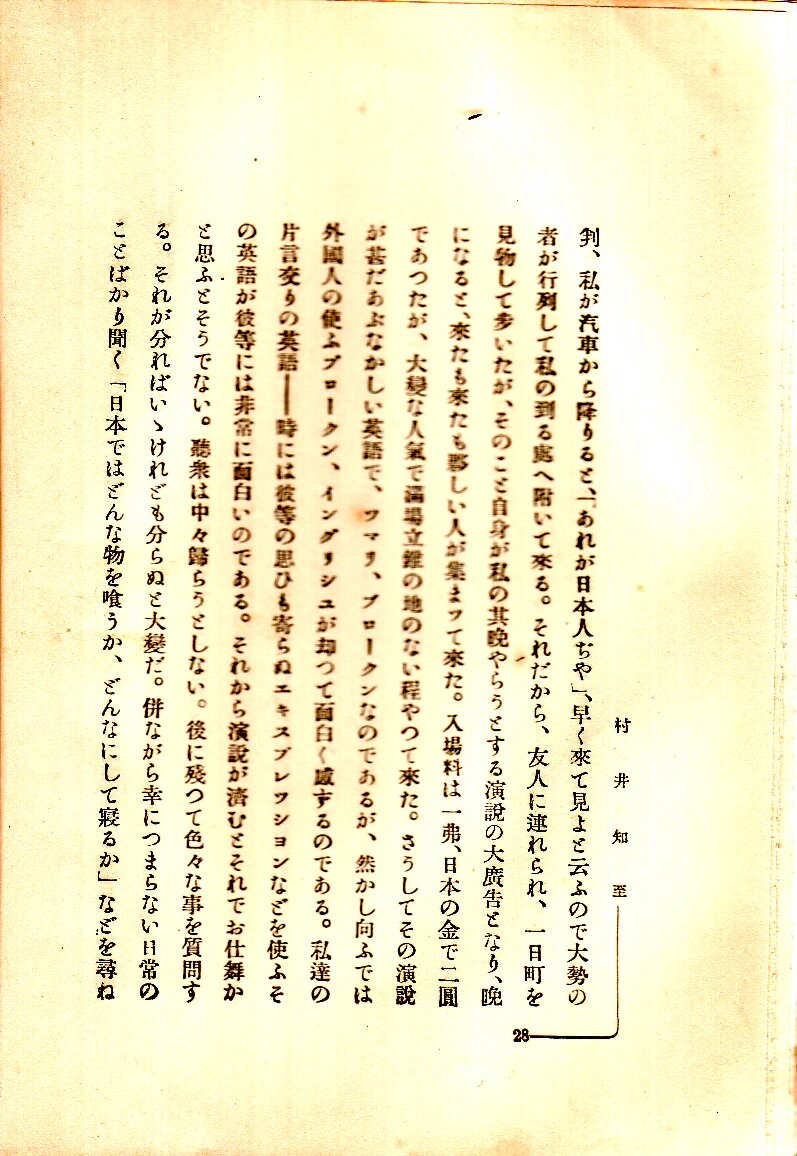 村井知至
28
判、私が汽車から降りると、「あれが日本人ぢや」、早く來て見よと云ふので大勢の
者が行列して私の到る處へ附いて來る。それだから、友人に連れられ、一日町を
見物して歩いたが、そのこと自身が私の其晩やらうとする演説の大廣告となり、晩
になると、來たも來たも夥しい人が集まツて來た。入場料は一弗、日本の金で二圓
であつたが、大變な人氣で滿場立錐の地のない程やつて來た。さうしてその演説
が甚だあぶなかしい英語で、ツマリ、ブロークンなのであるが、然かし向ふでは
外國人の使ふブロークン、イングリシユが却つて面白く感ずるのである。私達の
片言交りの英語――時には彼等の思ひも寄らぬエキスプレツシヨンなどを使ふそ
の英語が彼等には非常に面白いのである。それから演説が濟むとそれでお仕舞か
と思ふとそうでない。聽衆は中々歸らうとしない。後に殘つて色々な事を質問す
る。それが分ればいゝけれども分らぬと大變だ。併ながら幸につまらない日常の
ことばかり聞く「日本ではどんな物を喰うか、どんなにして寢るか」などを尋ね